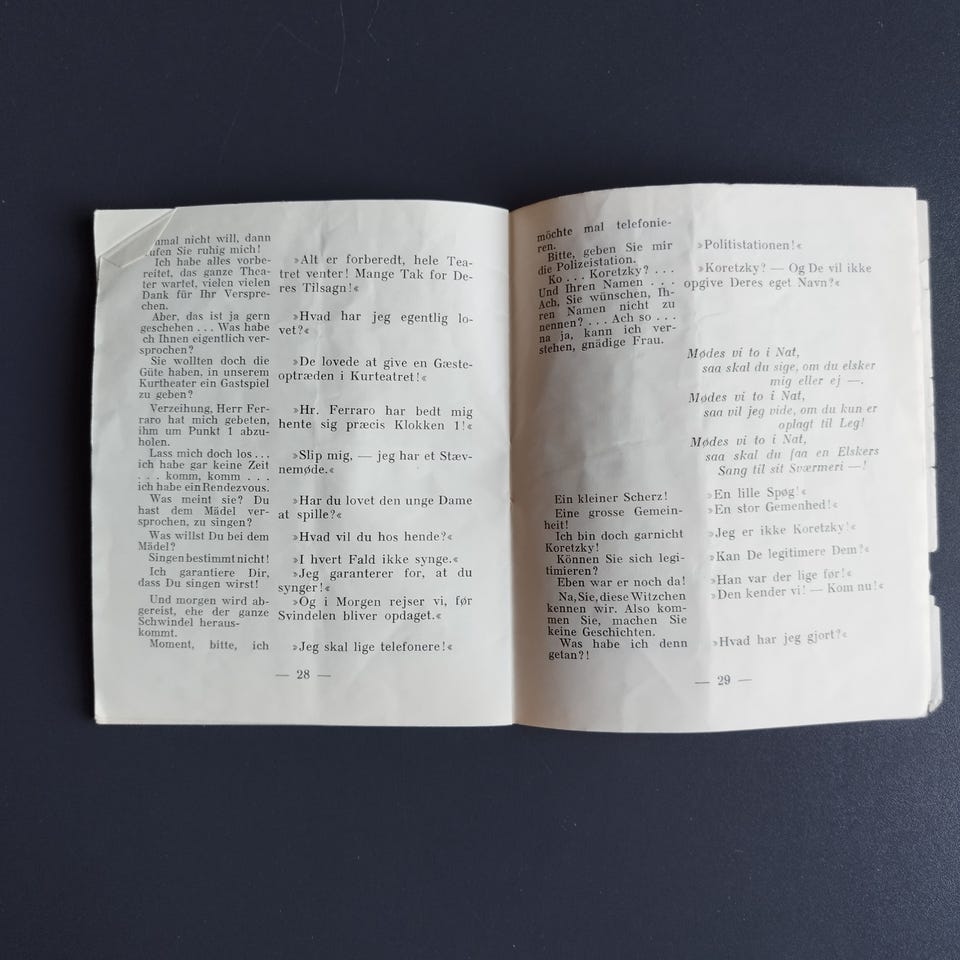 nmal nicht will, dann
ufen Sie ruhig mich!
Ich habe alles vorbe-
reitet, das ganze Thea-
ter wartet, vielen vielen
Dank für Ihr Verspre-
chen.
Aber, das ist ja gern
geschehen . . . Was habe
ch Ihnen eigentlich ver-
sprochen?
Sie wollten doch die
Güte haben, in unserem
Kurtheater ein Gastspiel
zu geben?
Verzeihung, Herr Fer-
raro hat mich gebeten,
ihm um Punkt 1 abzu-
holen.
Lass mich doch los . . .
ich habe gar keine Zeit
. . . komm, komm . . .
ich habe ein Rendezvous.
Was meint sie? Du
hast dem Mädel ver-
sprochen, zu singen?
Was willst Du bei dem
Mädel?
Singen bestimmt nicht!
Ich garantiere Dir,
dass Du singen wirst!
Und morgen wird ab-
gereist, ehe der ganze
Schwindel heraus-
kommt.
Moment, bitte, ich
»Alt er forberedt, hele Tea-
tret venter! Mange Tak for De-
res Tilsagn!«
»Hvad har jeg egentlig lo-
vet?«
»De lovede at give en Gæste-
optræden i Kurteatret!«
»Hr. Ferraro har bedt mig
hente sig præcis Klokken 1!«
»Slip mig, — jeg har et Stæv-
nemøde.«
»Har du lovet den unge Dame
at spille?«
»Hvad vil du hos hende?«
»I hvert Fald ikke synge.«
»Jeg garanterer for, at du
synger!«
»Og i Morgen rejser vi, før
Svindelen bliver opdaget.«
»Jeg skal lige telefonere!«
— 28 —
möchte mal telefonie-
ren.
Bitte, geben Sie mir
die Polizeistation.
Ko . . . Koretzky? . . .
Und Ihren Namen . . .
Ach, Sie wünschen, Ih-
ren Namen nicht zu
nennen? . . . Ach so . . .
na ja, kann ich ver-
stehen, gnädige Frau.
Ein kleiner Scherz!
Eine grosse Gemein-
heit!
Ich bin doch garnicht
Koretzky!
Können Sie sich legi-
timieren?
Eben war er noch da!
Na, Sie, diese Witzchen
kennen wir. Also kom-
men Sie, machen Sie
keine Geschichten.
Was habe ich denn
getan?!
»Politistationen!«
»Koretzky? — Og De vil ikke
opgive Deres eget Navn?«
Mødes vi to i Nat,
saa skal du sige, om du elsker
mig eller ej —.
Mødes vi to i Nat,
saa vil jeg vide, om du kun er
oplagt til Leg!
Mødes vi to i Nat,
saa skal du faa en Elskers
Sang til sit Sværmeri —!
»En lille Spøg!«
»En stor Gemenhed!«
»Jeg er ikke Koretzky!«
»Kan De legitimere Dem?«
»Han var der lige før!«
»Den kender vi! — Kom nu!«
»Hvad har jeg gjort?«
— 29 —